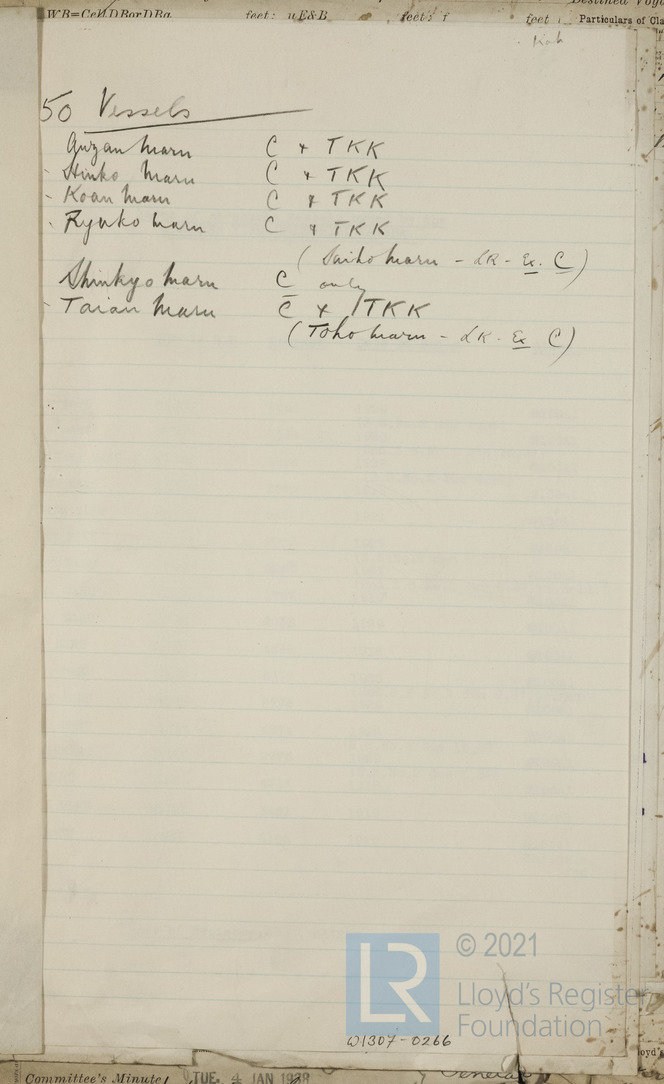 WB=CellDBorDBa feet: uE&B feet: f feet
Particulars of Cla
50 Vessels
Guzan Maru C & TKK
- Shinko Maru C & TKK
- Koan Maru C & TKK
- Ryuko Maru C & TKK
(Saiho Maru - LR - Ex. C)
Shinkyo Maru C only
- Taian Maru C & TKK
(Toho Maru - LR - Ex C)
LR
© 2021
Lloyd's Register
Foundation
W1307-0266
Committee's Minute TUE. 4 JAN 1938